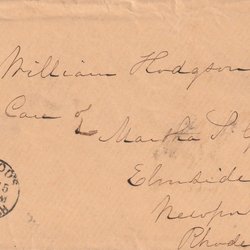 William Hodgson
Care of
Martha
Elmside
Newpor
Rhode